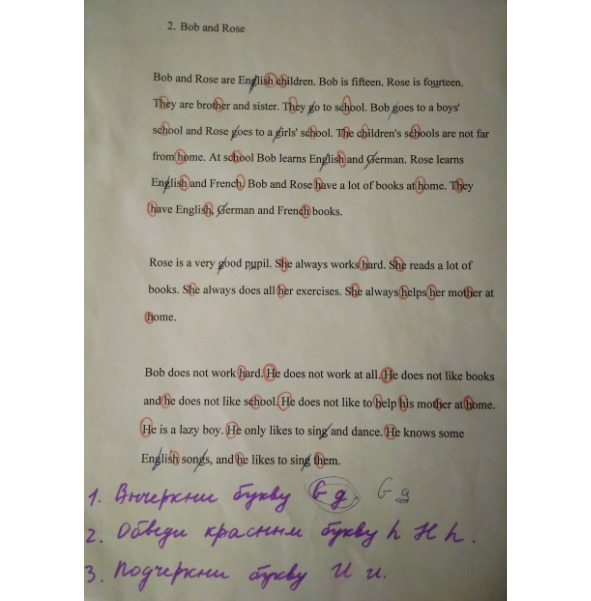 2. Bob and Rose
Bob and Rose are English children. Bob is fifteen. Rose is fourteen.
They are brother and sister. They go to school. Bob goes to a boys'
school and Rose goes to a girls' school. The children's schools are not far
from home. At school Bob learns English and German. Rose learns
English and French. Bob and Rose have a lot of books at home. They
have English, German and French books.
Rose is a very good pupil. She always works hard. She reads a lot of
books. She always does all her exercises. She always helps her mother at
home.
Bob does not work hard. He does not work at all. He does not like books
and he does not like school. He does not like to help his mother at home.
He is a lazy boy. He only likes to sing and dance. He knows some
English songs, and he likes to sing them.
1. Вычеркни букву G g. G g
2. Обведи красным букву h H h.
3. Подчеркни букву U u.